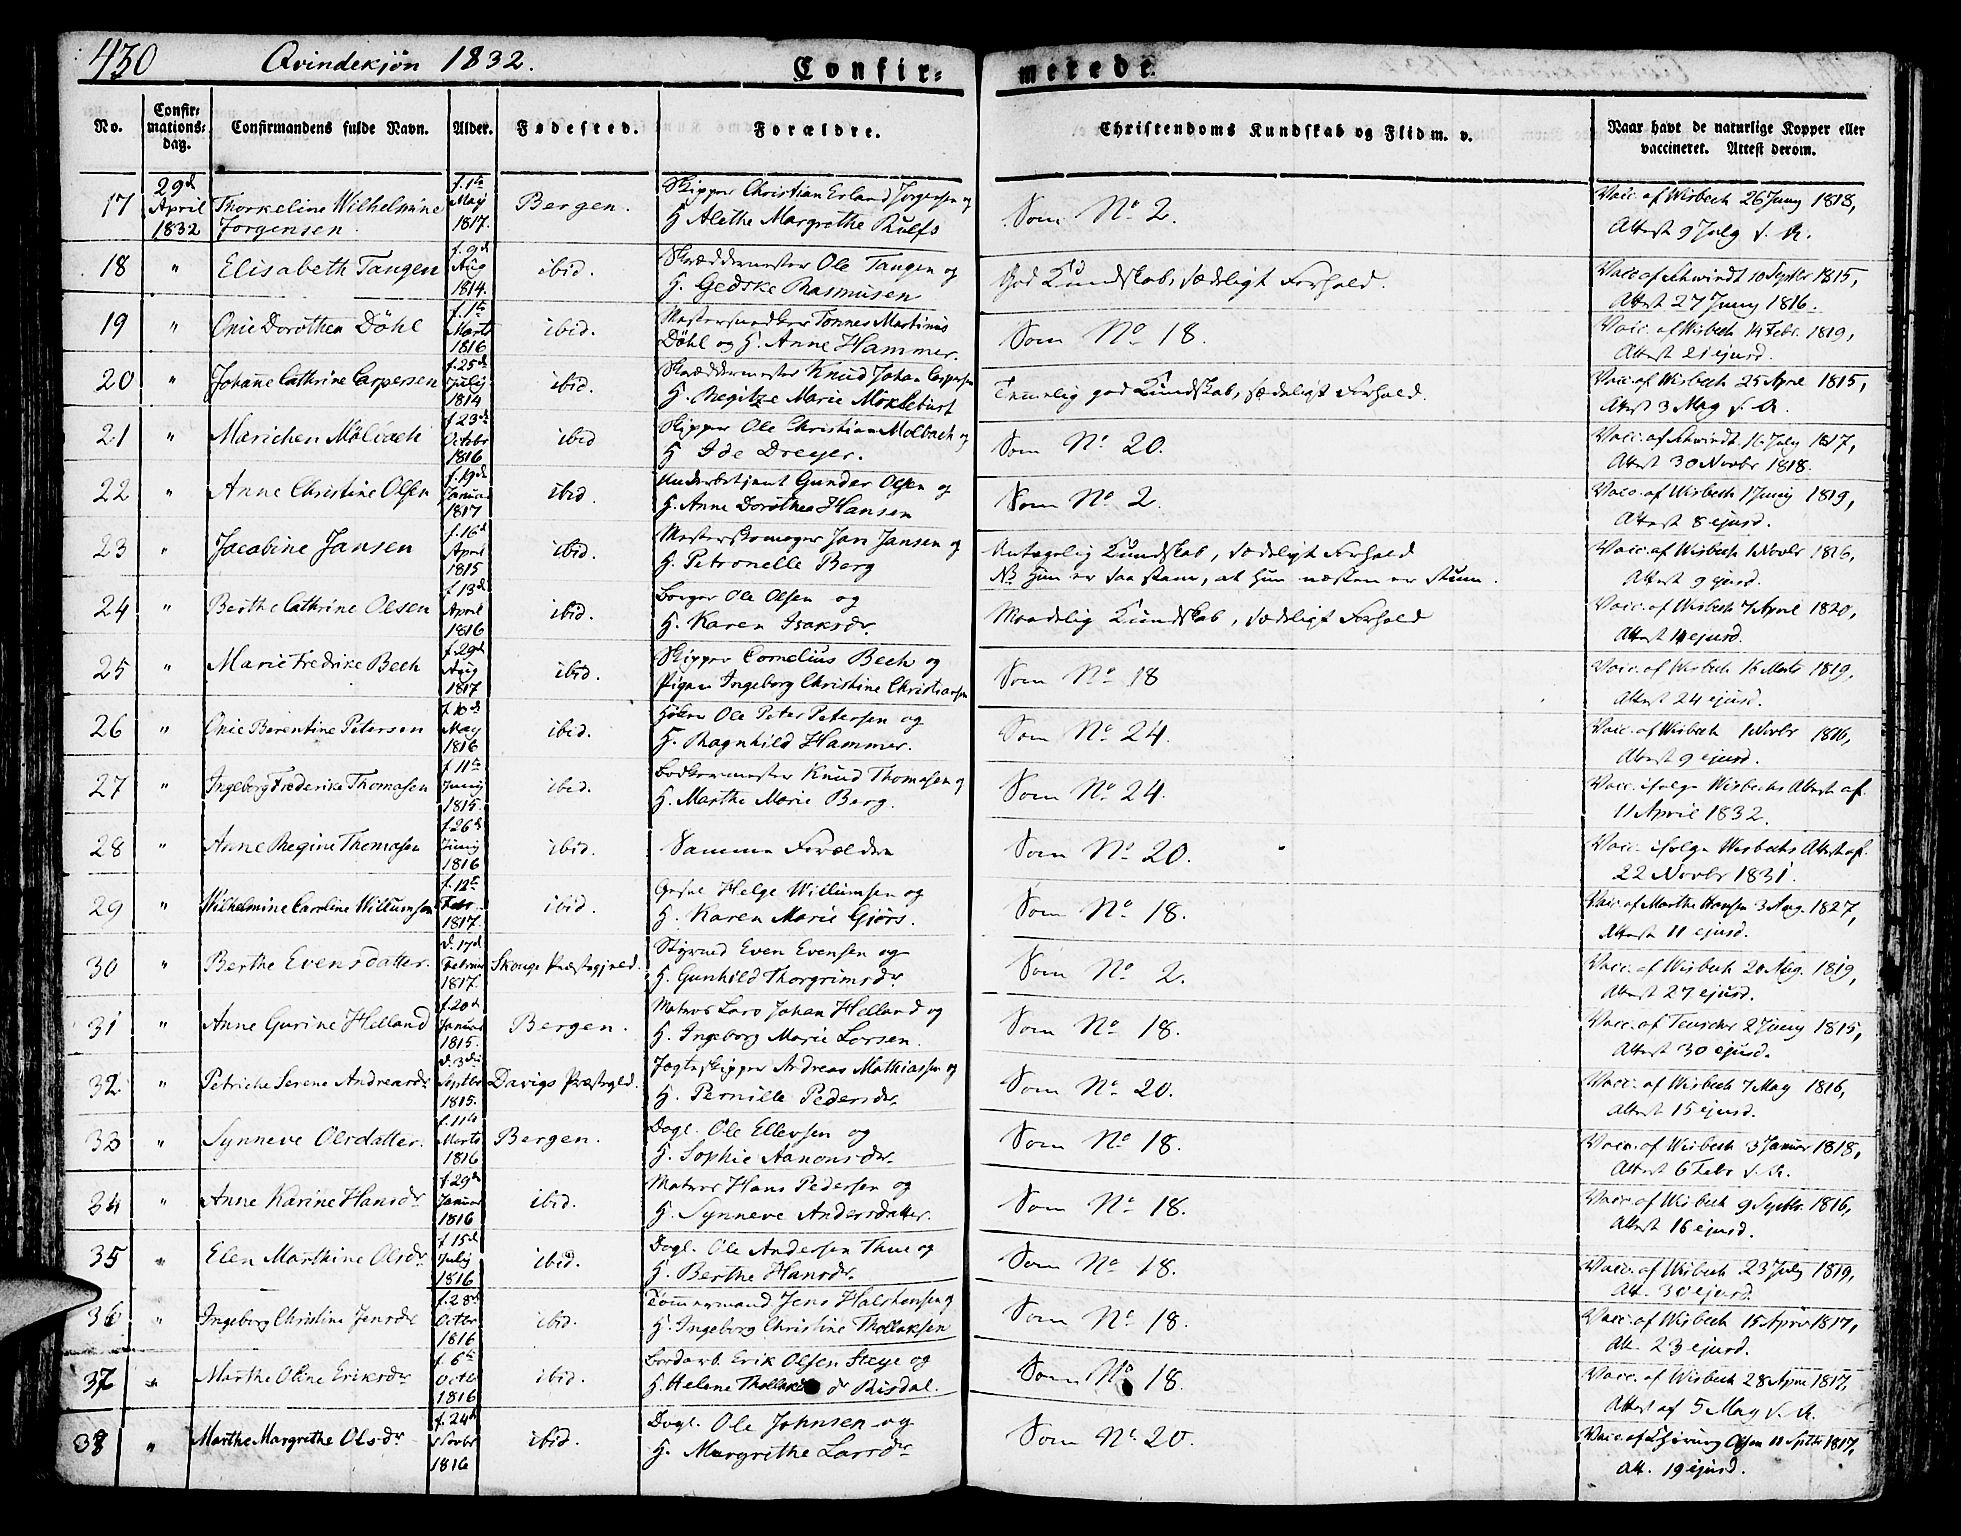 430 Qvindekjøn 1832. Confir- merede.
No. Confir- mations- dag. Confirmandens fulde Navn. Alder. Fødested. Forældre. Christendoms Kundskab og Flid m. v. Naar havt de naturlige Kopper eller vaccineret. Attest derom.
17 29d April 1832 Thorkeline Wilhelmine Jørgensen. f. 1te May 1817. Bergen. Skipper Christian Erland Jørgensen og H. Alethe Margrethe Rulfs Som No 2. Vacc. af Wisbech 26 Juny 1818, Attest 9 July s. A.
18 " Elisabeth Tangen f. 9d Aug 1814. ibid. Skræddermester Ole Tangen og H. Gedske Rasmusen God Kundskab, sædeligt Forhold. Vacc. af Schwindt 10 Septbr 1815, Attest 27 Juny 1816.
19 " Onie Dorothea Döhl f. 1te Marts 1816 ibid. Tønnes Martinus Döhl og H. Anne Hammer. Som No 18. Vacc. af Wisbech 14 Febr. 1819, Attest 21 ejusd.
20 " Johanne Cathrine Caspersen f. 25d July 1814 ibid. Skræddermester Knud Johan Caspersen H. Regitze Marie Mokleburst Temelig god Kundskab, sædeligt Forhold. Vacc. af Wisbech 25 April 1815, Attest 3 May s. A.
21 " Marichen Mölbach f. 23d Octobr 1816 ibid Skipper Ole Christian Molbach og H Ide Dreyer. Som No 20. Vacc. af Schwindt 16 July 1817, Attest 30 Novbr 1818.
22 " Anne Christine Olsen f. 19d Januar 1817 ibid. Gunder Olsen og H. Anne Dorothea Hansen Som No 2. Vacc. af Wisbech 1 Juny 1819, Attest 8 ejusd.
23 " Jacobine Jansen f. 16d April 1815 ibid. Mesterskomager Jan Jansen og H. Petronelle Berg Antagelig Kundskab, sædeligt Forhold NB Hun er saa stam, at hun næsten er stum. Vacc. af Wisbech 1 Novbr 1816, Attest 9 ejusd.
24 " Berthe Cathrine Olsen f. 13d April 1816 ibid. Borger Ole Olsen og H. Karen Isaksdr. Maadelig Kundskab, sædeligt Forhold Vacc. af Wisbech 7 April 1820, Attest 14 ejusd.
25 " Marie Fredrike Bech f. 29d Aug 1817 ibid. Skipper Cornelius Bech og Pigen Ingeborg Christine Christiansen Som No 18 Vacc. af Wisbech 16 Marts 1819, Attest 24 ejusd.
26 " Onie Berentine Petersen f. 10d May 1816 ibid. Høker Ole Peter Petersen og H. Ragnhild Hammer. Som No 24. Vacc. af Wisbech 1 Novbr 1816, Attest 9 ejusd.
27 " Ingeborg Frederike Thomasen f. 11te Juny 1815. ibid. Bødkermester Knud Thomasen og H. Marthe Marie Berg. Som No 24. Vacc. ifølge Wisbechs Attest af 11 April 1832.
28 " Anne Regine Thomasen f. 26d Juny 1816 ibid. Samme Forældre Som No 20. Vacc. ifølge Wisbechs Attest af 22 Novbr 1831.
29 " Wilhelmine Caroline Willumsen f. 12te Febr. 1817. ibid. Helge Willumsen og H. Karen Marie Gjörs. Som No 18. Vacc. af Marthe Hansen 3 Aug. 1827, Attest 11 ejusd.
30 " Berthe Evensdatter. d. 17d Februar 1817. Skouge Præstegjæld. Styrmd Even Evensen og H. Gunhild Thorgrimsdr. Som No 2. Vacc. af Wisbech 20 Aug. 1819, Attest 27 ejusd.
31 " Anne Gurine Helland f. 20d Januar 1815. Bergen. Matros Lars Johan Helland og H. Ingeborg Marie Larsen. Som No 18. Vacc. af Teuscher 2 Juny 1815, Attest 30 ejusd.
32 " Petriche Serene Andreasdr d. 3die Septbr 1815. Davigs Præstegld. Jagteskipper Andreas Mathiassen og H. Pernille Pedersdr. Som No 20. Vacc. af Wisbech 7 May 1816, Attest 15 ejusd.
33 " Synneve Olsdatter. f. 11te Marts 1816 Bergen. Dagl. Ole Ellevsen og H. Sophie Aanonsdr. Som No 18. Vacc. af Wisbech 3 Januar 1818, Attest 6 Febr s. A.
34 " Anne Karine Hansdr f. 29d Januar 1816 ibid. Matros Hans Pedersen og H. Synneve Andersdatter. Som No 18. Vacc. af Wisbech 9 Septbr. 1816, Attest 16 ejusd.
35 " Elen Marthine Olsdr f. 15d July 1816 ibid. Dagl. Ole Andersen Thue og H. Berthe Hansdr. Som No 18. Vacc. af Wisbech 23 July 1819, Att. 30 ejusd.
36 " Ingeborg Christine Jensdr f. 28d Octbr 1816 ibid. Tömmermand Jens Halstensen og H. Ingeborg Christine Thollaksen Som No 18. Vacc. af Wisbech 15 April 1817, Att. 23 ejusd.
37 " Marthe Oline Eriksdr f. 6te Octbr 1816 ibid. Bordarb. Erik Olsen Steye og H. Helene dr Risdal. Som No 18. Vacc. af Wisbech 28 April 1817, Attest af 5 May s. A.
38 " Marthe Margrethe Olsdr f. 24d Novbr 1816 ibid. Dagl. Ole Johnsen og H. Margrethe Larsdr Som No. 20. Vacc. af Olsen 11 Septbr 1817, Att. 19 ejusd.